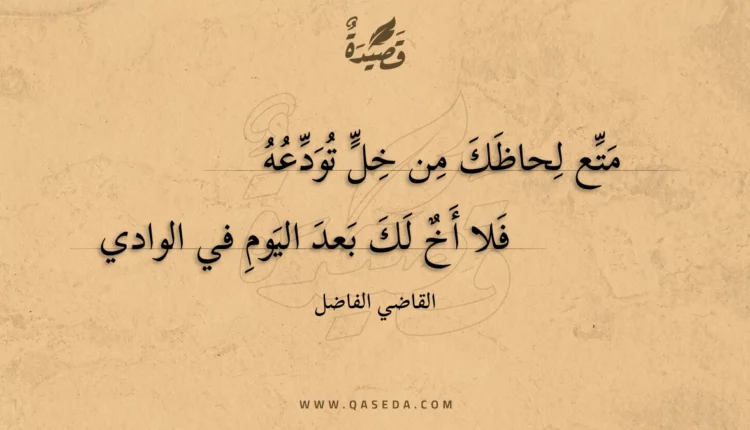 قَصِيدَةٌ
مَتِّع لِحاظَكَ مِن خِلٍّ تُوَدِّعُهُ
فَلا أَخٌ لَكَ بَعدَ اليَومِ في الوادي
القاضي الفاضل
WWW.QASEDA.COM